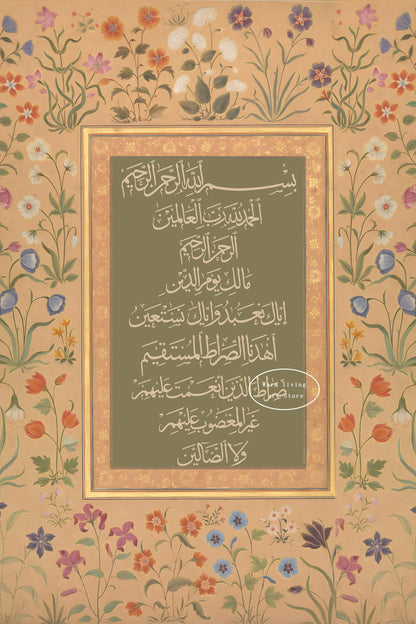 بسم الله الرحمن الرحيم
الحمد لله رب العالمين
الرحمن الرحيم
مالك يوم الدين
إياك نعبد وإياك نستعين
اهدنا الصراط المستقيم
صراط الذين أنعمت عليهم
غير المغضوب عليهم
ولا الضالين
living
store